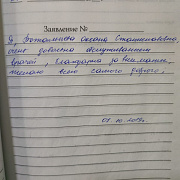 Заявление №
Я Оксана Станиславовна
очень довольна обслуживанием
врачей, благодарна за внимание,
желаю всего самого доброго.
07.10.2019г.